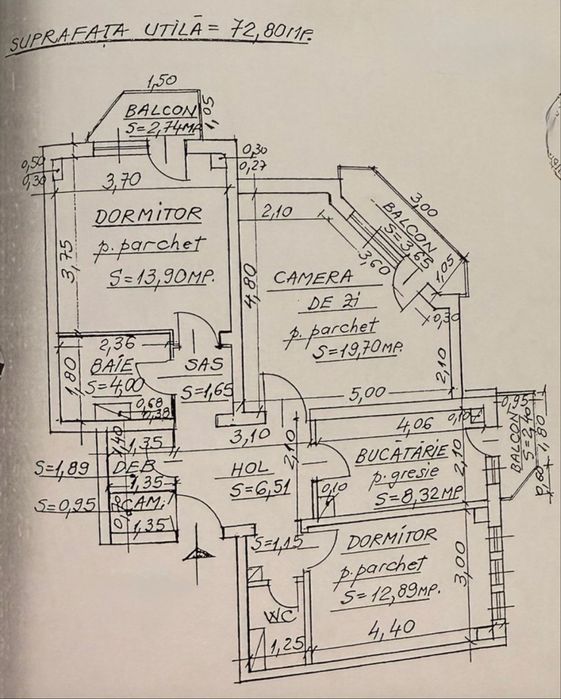 SUPRAFAȚA UTILĂ = 72,80 MP.
1,50
BALCON
S=2,74 MP
1,05
0,50
0,30
0,30
0,27
3,70
DORMITOR
p. parchet
S=13,90 MP.
3,75
2,10
3,00
BALCON
S=3,65
1,05
3,60
0,30
4,80
CAMERA
DE ZI
p. parchet
S=19,70 MP.
2,10
5,00
2,36
BAIE
S=4,00
1,80
SAS
S=1,65
0,68
1,38
0,95
BALCON
S=2,40
1,80
0,60
4,06
0,10
3,10
2,10
1,40
1,35
S=1,89
DEB
1,35
HOL
S=6,51
BUCĂTĂRIE
p. gresie
S=8,32 MP
2,10
0,10
S=0,95
CAM.
0,70
1,35
S=1,15
DORMITOR
p. parchet
S=12,89 MP.
3,00
WC
1,25
4,40